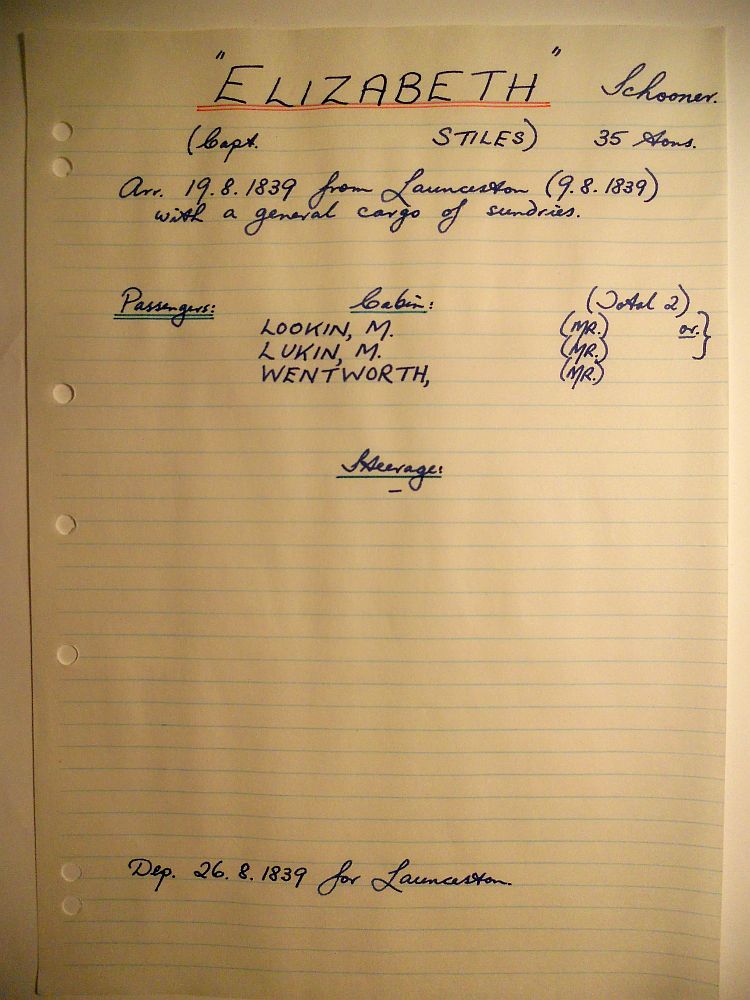 "ELIZABETH" Schooner.
(Capt. STILES) 35 tons.
Arr. 19.8.1839 from Launceston (9.8.1839)
with a general cargo of sundries.
Passengers: Cabin: (Total 2)
LOOKIN, M. (MR.) or. }
LUKIN, M. (MR.)
WENTWORTH, (MR.)
Steerage:
–
Dep. 26.8.1839 for Launceston.